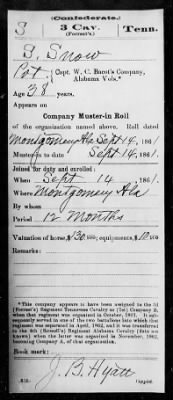 S
(Confederate.)
3 Cav.
(Forrest's.)
Tenn.
S. Snow
Pvt., Capt. W. C. Bacot's Company,
Alabama Vols.*
Age 38 years.
Appears on
Company Muster-in Roll
of the organization named above. Roll dated
Montgomery Ala Sept 14, 1861
Muster-in to date Sept 14, 1861.
Joined for duty and enrolled:
When Sept 14, 1861.
Where Montgomery Ala
By whom
Period 12 Months
Valuation of horse, $130 ; equipments, $10
Remarks:
*This company appears to have been assigned to the 3d
(Forrest's) Regiment Tennessee Cavalry as (1st) Company B,
when that regiment was organized in October, 1861. It sub-
sequently served in one of two battalions into which the
regiment was separated in April, 1862, and it was transferred
to the
Regiment Alabama Cavalry (also known as
when the latter was organized in November, 1862,
becoming Company A, of that organization.
Book mark:
J. B. Hyatt
Copyist.